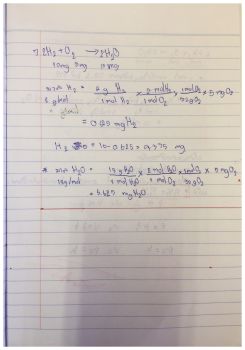 2H₂ + O₂ → 2H₂O
10mg 5mg
= 2 g H₂ / 1 mol H₂ × 2 mol H₂ / 1 mol O₂ × 1 mol O₂ / 32g O₂ × 5 mg O₂
= 0.625 mg H₂
H₂ = 10-0.625 = 9.375 mg
H₂O = 18 g H₂O / 1 mol H₂O × 2 mol H₂O / 1 mol O₂ × 1 mol O₂ / 32 g O₂ × 5 mg O₂
18g/mol
= 5.625 mg H₂O